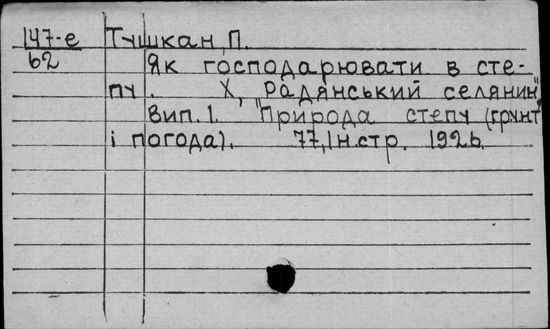 147-е Тушкан, П.
62 Як господарювати в сте-
пу. Х, "Радянський селянин",
Вип. 1. "Природа степу (ґрунт
і погода). 77, Ін.стр. 1926.